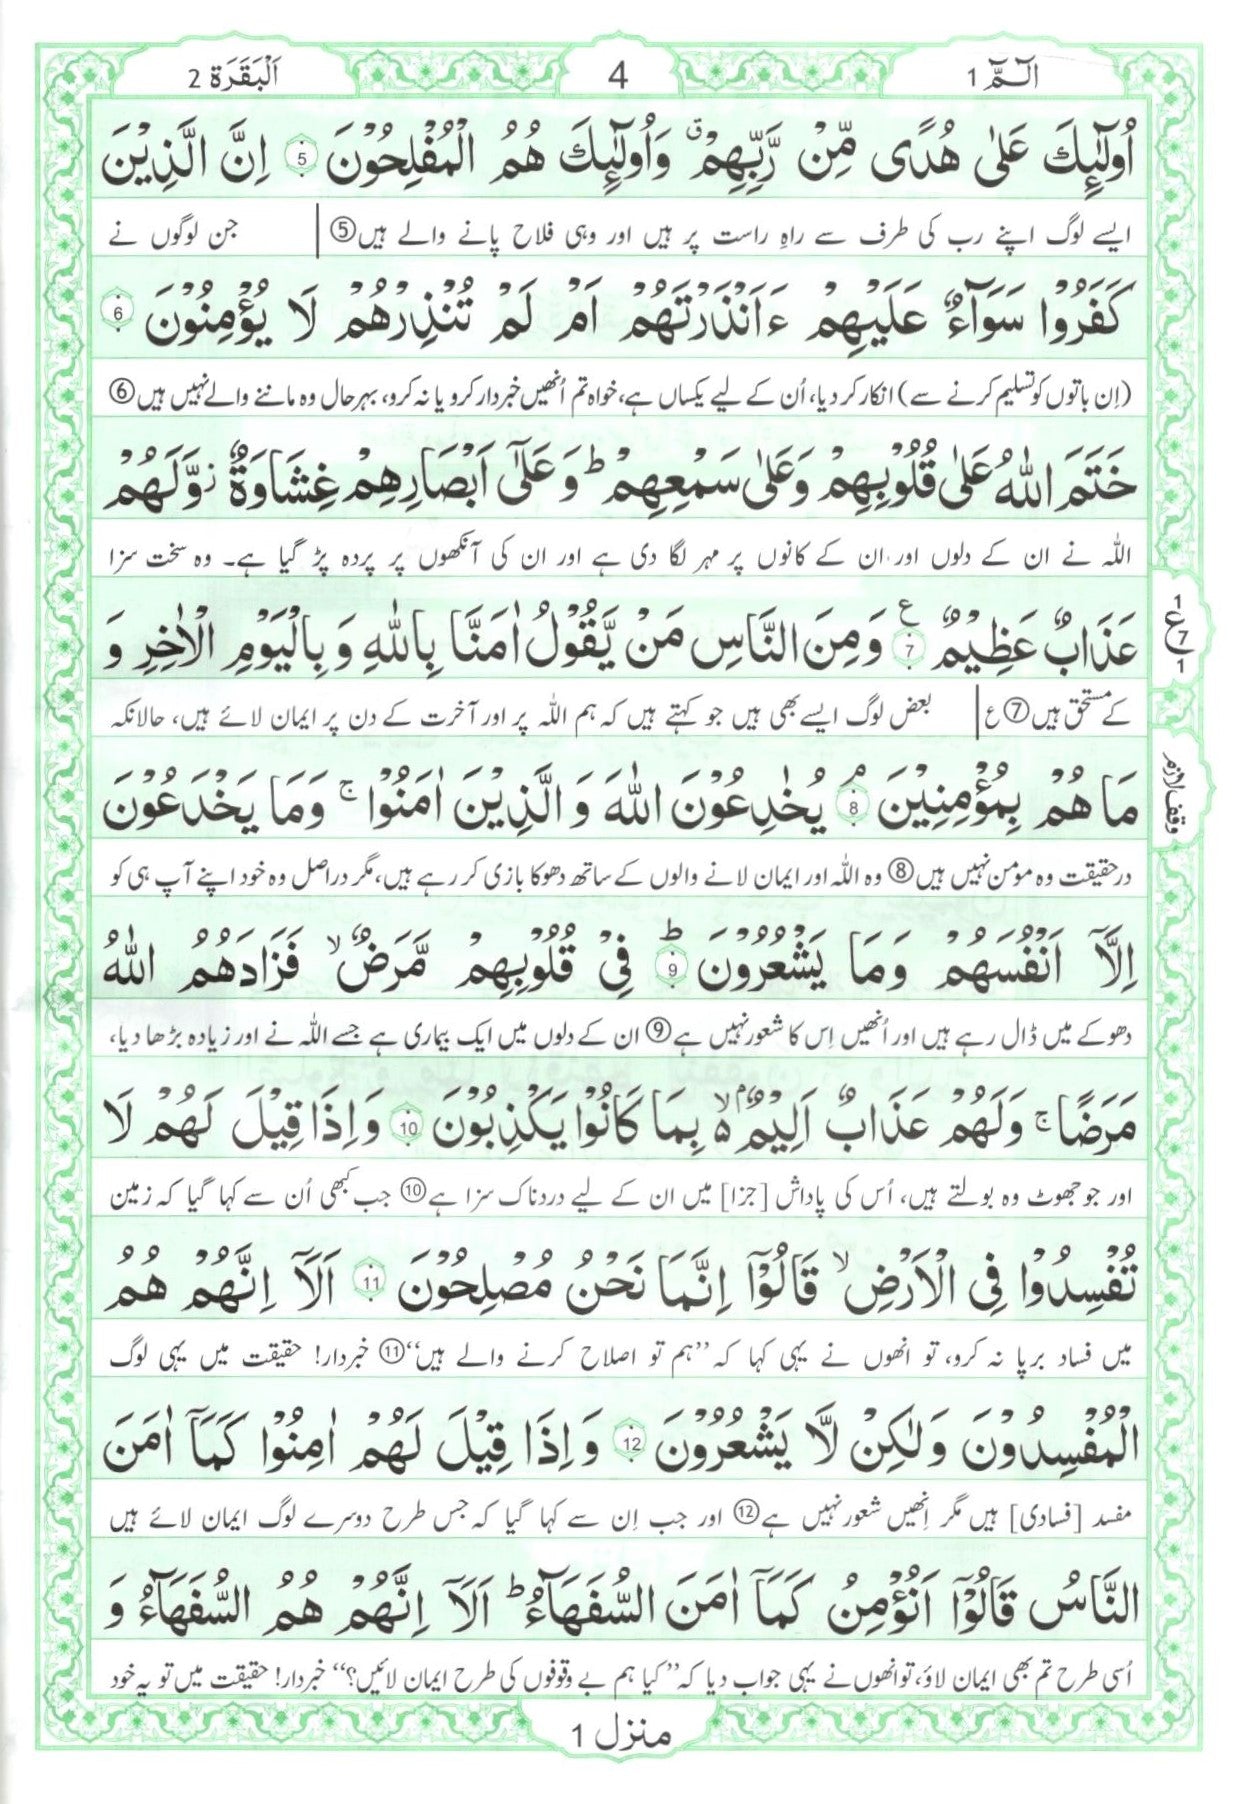 الٓـمّٓ 1
4
اَلْبَقَرَة 2
اُولٰٓئِكَ عَلٰى هُدًى مِّنْ رَّبِّهِمْ ۗ وَاُولٰٓئِكَ هُمُ الْمُفْلِحُوْنَ 5 اِنَّ الَّذِيْنَ
ایسے لوگ اپنے رب کی طرف سے راہِ راست پر ہیں اور وہی فلاح پانے والے ہیں⑤ جن لوگوں نے
كَفَرُوْا سَوَآءٌ عَلَيْهِمْ ءَاَنْذَرْتَهُمْ اَمْ لَمْ تُنْذِرْهُمْ لَا يُؤْمِنُوْنَ 6
(اِن باتوں کو تسلیم کرنے سے) انکار کر دیا، اُن کے لیے یکساں ہے، خواہ تم اُنھیں خبردار کرو یا نہ کرو، بہرحال وہ ماننے والے نہیں ہیں⑥
خَتَمَ اللّٰهُ عَلٰى قُلُوْبِهِمْ وَعَلٰى سَمْعِهِمْ ؕ وَعَلٰٓى اَبْصَارِهِمْ غِشَاوَةٌ ز وَّلَهُمْ
اللہ نے ان کے دلوں اور ان کے کانوں پر مہر لگا دی ہے اور ان کی آنکھوں پر پردہ پڑ گیا ہے۔ وہ سخت سزا
عَذَابٌ عَظِيْمٌ 7 ع وَمِنَ النَّاسِ مَنْ يَّقُوْلُ اٰمَنَّا بِاللّٰهِ وَبِالْيَوْمِ الْاٰخِرِ وَ
1 ع 7 1
کے مستحق ہیں⑦ ع بعض لوگ ایسے بھی ہیں جو کہتے ہیں کہ ہم اللہ پر اور آخرت کے دن پر ایمان لائے ہیں، حالانکہ
مَا هُمْ بِمُؤْمِنِيْنَ 8 ۘ يُخٰدِعُوْنَ اللّٰهَ وَالَّذِيْنَ اٰمَنُوْا ۚ وَمَا يَخْدَعُوْنَ
وقف لازم
درحقیقت وہ مومن نہیں ہیں⑧ وہ اللہ اور ایمان لانے والوں کے ساتھ دھوکا بازی کر رہے ہیں، مگر دراصل وہ خود اپنے آپ ہی کو
اِلَّآ اَنْفُسَهُمْ وَمَا يَشْعُرُوْنَ 9 ؕ فِيْ قُلُوْبِهِمْ مَّرَضٌ ۙ فَزَادَهُمُ اللّٰهُ
دھوکے میں ڈال رہے ہیں اور اُنھیں اِس کا شعور نہیں ہے⑨ ان کے دلوں میں ایک بیماری ہے جسے اللہ نے اور زیادہ بڑھا دیا،
مَرَضًا ۚ وَلَهُمْ عَذَابٌ اَلِيْمٌۢ ۙ بِمَا كَانُوْا يَكْذِبُوْنَ 10 وَاِذَا قِيْلَ لَهُمْ لَا
اور جو جھوٹ وہ بولتے ہیں، اُس کی پاداش [جزا] میں ان کے لیے دردناک سزا ہے⑩ جب کبھی اُن سے کہا گیا کہ زمین
تُفْسِدُوْا فِي الْاَرْضِ ۙ قَالُوْٓا اِنَّمَا نَحْنُ مُصْلِحُوْنَ 11 اَلَآ اِنَّهُمْ هُمُ
میں فساد برپا نہ کرو، تو انھوں نے یہی کہا کہ ’’ہم تو اصلاح کرنے والے ہیں‘‘⑪ خبردار! حقیقت میں یہی لوگ
الْمُفْسِدُوْنَ وَلٰكِنْ لَّا يَشْعُرُوْنَ 12 وَاِذَا قِيْلَ لَهُمْ اٰمِنُوْا كَمَآ اٰمَنَ
مفسد [فسادی] ہیں مگر اِنھیں شعور نہیں ہے⑫ اور جب اِن سے کہا گیا کہ جس طرح دوسرے لوگ ایمان لائے ہیں
النَّاسُ قَالُوْٓا اَنُؤْمِنُ كَمَآ اٰمَنَ السُّفَهَآءُ ؕ اَلَآ اِنَّهُمْ هُمُ السُّفَهَآءُ وَ
اُسی طرح تم بھی ایمان لاؤ، تو انھوں نے یہی جواب دیا کہ ’’کیا ہم بے وقوفوں کی طرح ایمان لائیں؟‘‘ خبردار! حقیقت میں تو یہ خود
منزل 1